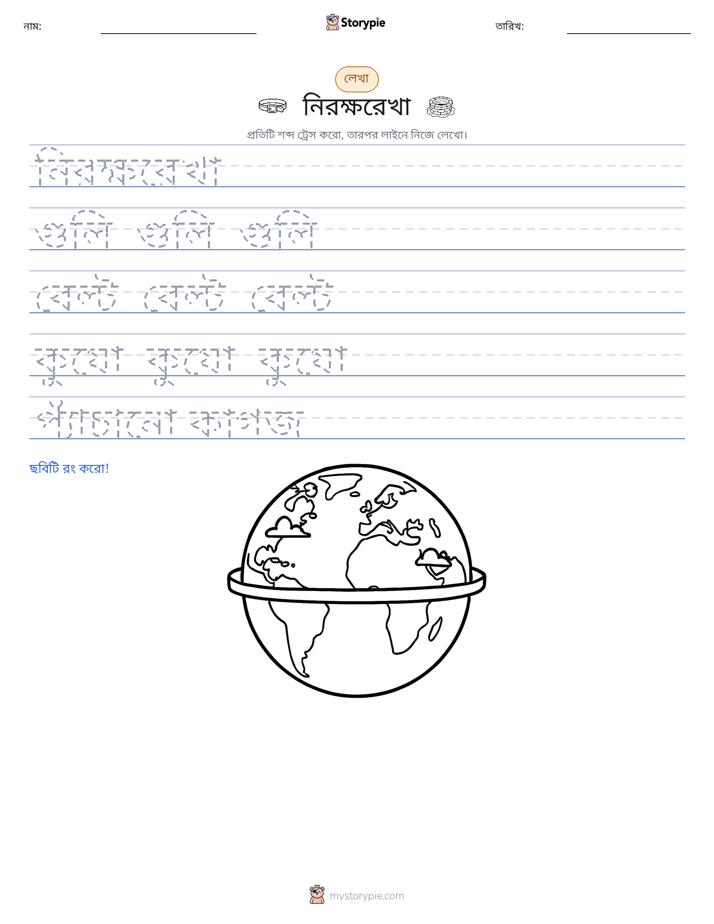 নাম:
Storypie
তারিখ:
লেখা
নিরক্ষরেখা
প্রতিটি শব্দ ট্রেস করো, তারপর লাইনে নিজে লেখো।
নিরক্ষরেখা
গুলি গুলি গুলি
বেল্ট বেল্ট বেল্ট
কুয়ো কুয়ো কুয়ো
প্যাঁচানো কাগজ
ছবিটি রং করো!
mystorypie.com